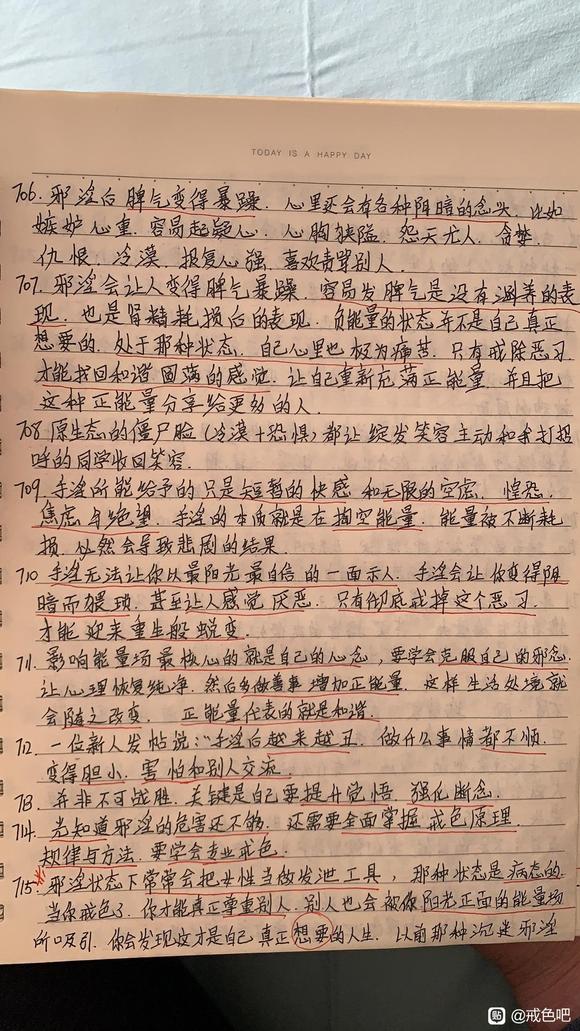 TODAY IS A HAPPY DAY
706. 邪淫后脾气变得暴躁. 心里还会有各种阴暗的念头. 比如
嫉妒心重. 容易起疑心. 心胸狭隘. 怨天尤人. 贪婪.
仇恨. 冷漠. 报复心强. 喜欢责骂别人.
707. 邪淫会让人变得脾气暴躁. 容易发脾气是没有涵养的表
现. 也是肾精耗损后的表现. 负能量的状态并不是自己真正
想要的. 处于那种状态. 自己心里也极为痛苦. 只有戒除恶习
才能找回和谐圆满的感觉. 让自己重新充满正能量. 并且把
这种正能量分享给更多的人.
708 原生态的僵尸脸(冷漠+恐惧)都让绽发笑容主动和我打招
呼的同学收回笑容.
709. 手淫所能给予的只是短暂的快感和无限的空虚. 惶恐.
焦虑与绝望. 手淫的本质就是在掏空能量. 能量被不断耗
损. 必然会导致悲剧的结果.
710 手淫无法让你以最阳光最自信的一面示人. 手淫会让你变得阴
暗而猥琐. 甚至让人感觉厌恶. 只有彻底戒掉这个恶习.
才能迎来重生般蜕变.
711. 影响能量场最核心的就是自己的心念, 要学会克服自己的邪念.
让心理恢复纯净. 然后多做善事增加正能量. 这样生活处境就
会随之改变. 正能量代表的就是和谐.
712. 一位新人发帖说:"手淫后越来越丑. 做什么事情都不顺.
变得胆小. 害怕和别人交流.
713. 并非不可战胜. 关键是自己要提升觉悟. 强化断念.
714. 光知道邪淫的危害还不够. 还需要全面掌握戒色原理.
规律与方法. 要学会专业戒色.
715. 邪淫状态下常常会把女性当做发泄工具, 那种状态是病态的.
当你戒色了. 你才能真正尊重别人. 别人也会被你阳光正面的能量场
所吸引. 你会发现这才是自己真正想要的人生. 以前那种沉迷邪淫
贴 @戒色吧